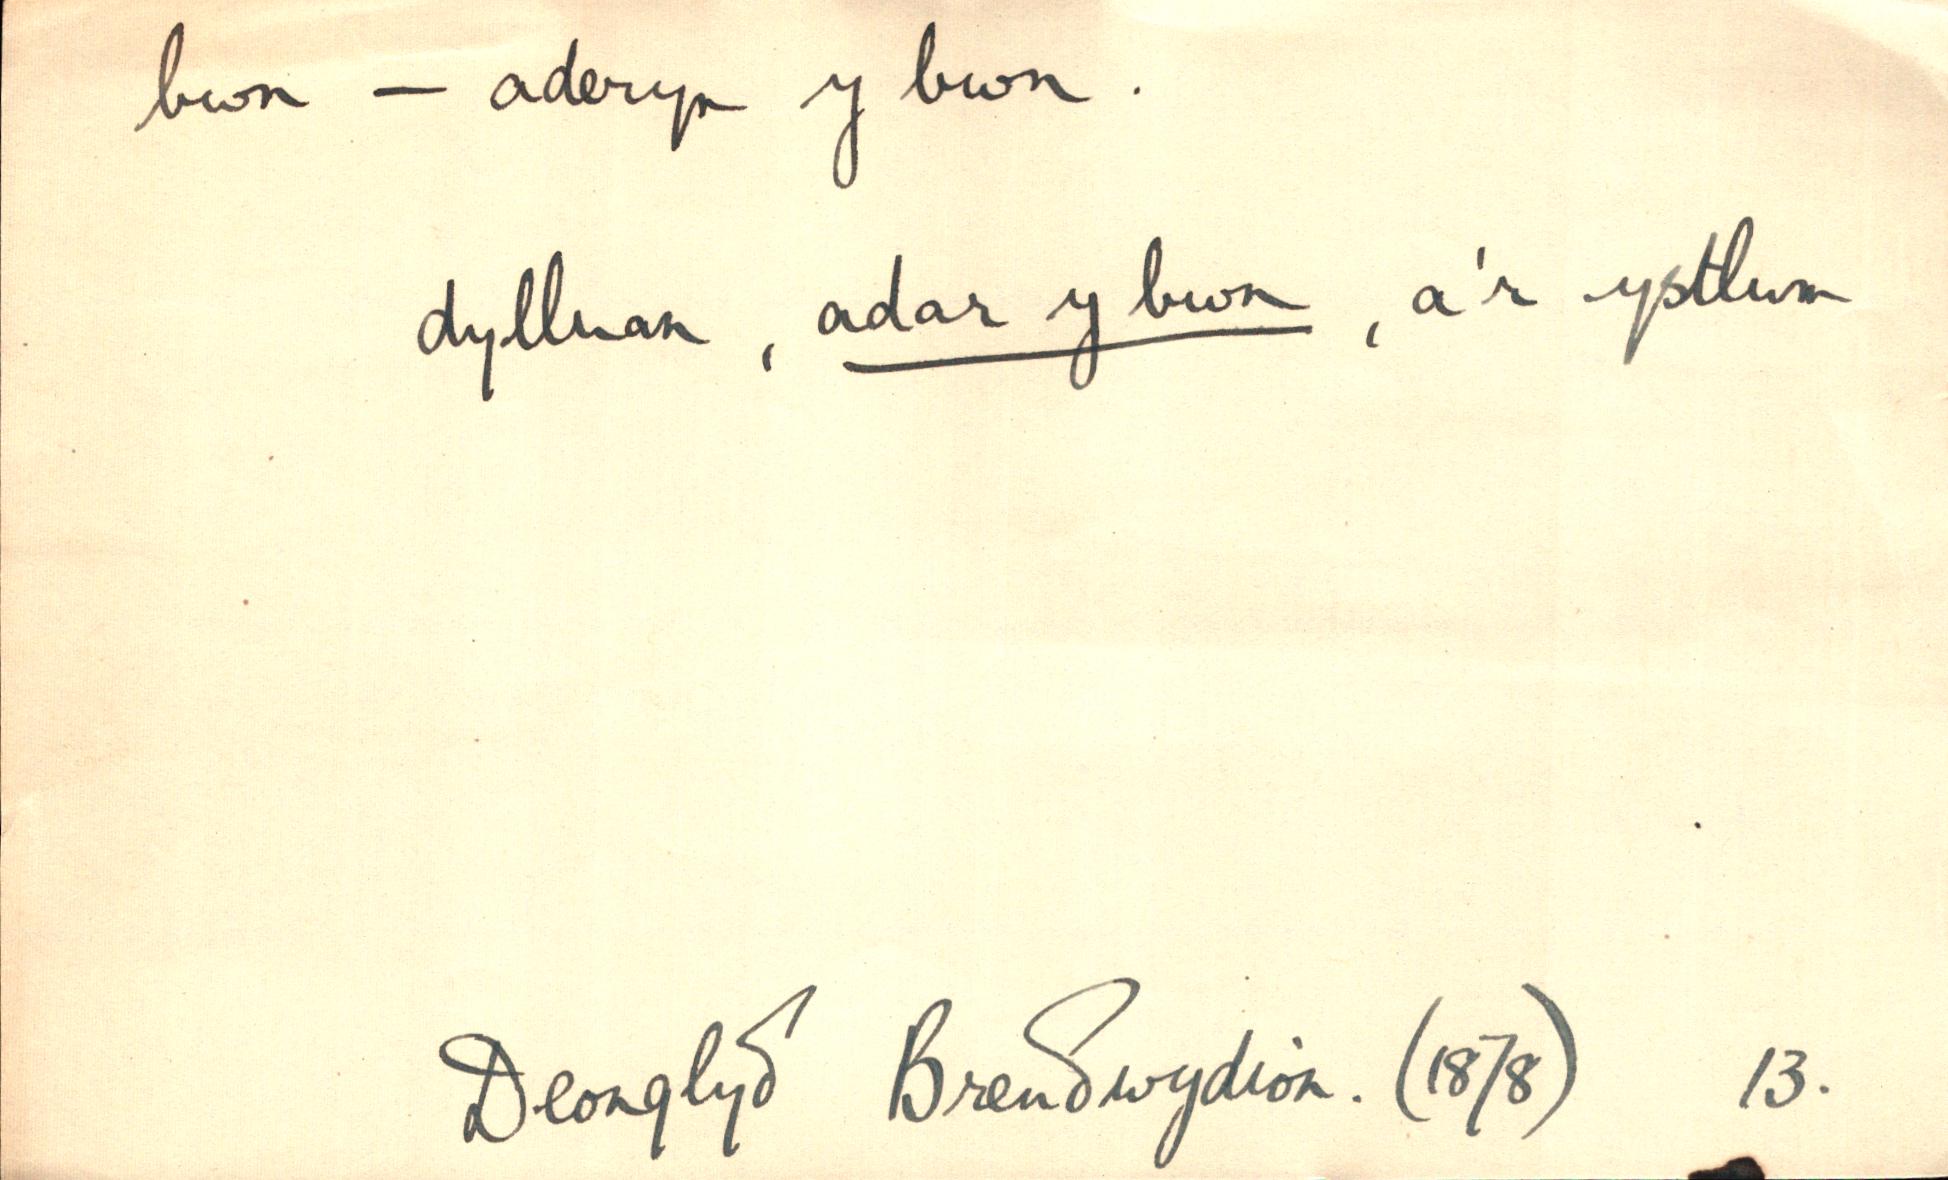 bwn — aderyn y bwn.
dylluan, adar y bwn, a'r ystlum
Deonglyδ Breuδwydion. (1878) 13.